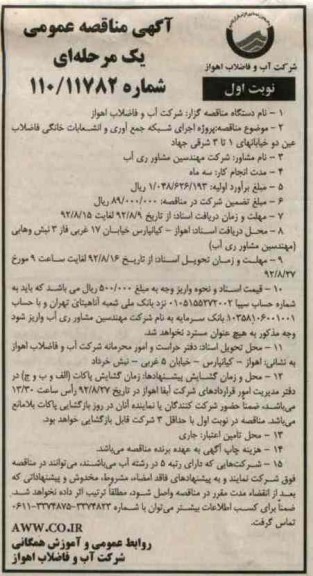 آگهی مناقصه عمومی
یک مرحله‌ای
شماره ۱۱۰/۱۱۷۸۲
شرکت آب و فاضلاب اهواز
نوبت اول
۱ - نام دستگاه مناقصه گزار: شرکت آب و فاضلاب اهواز
۲ - موضوع مناقصه:پروژه اجرای شبکه جمع آوری و انشعابات خانگی فاضلاب
عین دو خیابانهای ۱ تا ۳ شرقی جهاد
۳ - نام مشاور: شرکت مهندسین مشاور ری آب
۴ - مدت انجام کار: سه ماه
۵ - مبلغ برآورد اولیه: ۱/۰۴۸/۶۳۶/۱۹۳ ریال
۶ - مبلغ تضمین شرکت در مناقصه: ۸۹/۰۰۰/۰۰۰ ریال
۷ - مهلت و زمان دریافت اسناد: از تاریخ ۹۲/۸/۹ لغایت ۹۲/۸/۱۵
۸ - محل دریافت اسناد: اهواز - کیانپارس خیابان ۱۷ غربی فاز ۳ نبش وهابی
(مهندسین مشاور ری آب)
۹ - مهلت و زمان تحویل اسناد: از تاریخ ۹۲/۸/۱۶ لغایت ساعت ۹ مورخ
۹۲/۸/۲۷
۱۰ - قیمت اسناد و نحوه واریز وجه به مبلغ ۵۰۰/۰۰۰ ریال می باشد که باید به
شماره حساب سیبا ۰۱۰۵۱۵۵۲۷۲۰۰۲ نزد بانک ملی شعبه آناهیتای تهران و با حساب
۱۰۳۵۸۱۰۶۰۰۱۰۰۱ بانک سرمایه به نام شرکت مهندسین مشاور ری آب واریز شود
وجه مذکور به هیچ عنوان مسترد نخواهد شد.
۱۱ - محل تحویل اسناد: دفتر حراست و امور محرمانه شرکت آب و فاضلاب اهواز
به نشانی: اهواز - کیانپارس - خیابان ۵ غربی - نبش خرداد
۱۲ - محل و زمان گشایش پیشنهادها: زمان گشایش پاکات (الف و ب و ج) در
دفتر مدیریت امور قراردادهای شرکت آبفا اهواز در تاریخ ۹۲/۸/۲۷ رأس ساعت ۱۳/۳۰
می‌باشد، ضمناً حضور شرکت کنندگان یا نماینده آنان در روز بازگشایی پاکات بلامانع
می‌باشد. مناقصه در نوبت اول با حداقل ۳ شرکت قابل بازگشایی خواهد بود.
۱۳ - محل تامین اعتبار: جاری
۱۴ - هزینه چاپ آگهی به عهده برنده مناقصه می‌باشد.
۱۵ - شرکت‌هایی که دارای رتبه ۵ در رشته آب می‌باشند، می‌توانند در مناقصه
فوق شرکت نمایند و به پیشنهادهای فاقد امضاء، مشروط، مخدوش و پیشنهاداتی که
بعد از انقضاء مدت مقرر در مناقصه واصل شود، مطلقاً ترتیب اثر داده نخواهد شد.
ضمناً برای کسب اطلاعات بیشتر می‌توان با شماره ۳۳۷۴۸۲۳-۳۳۷۴۸۷۵-۰۶۱۱
تماس گرفت.
AWW.CO.IR
روابط عمومی و آموزش همگانی
شرکت آب و فاضلاب اهواز